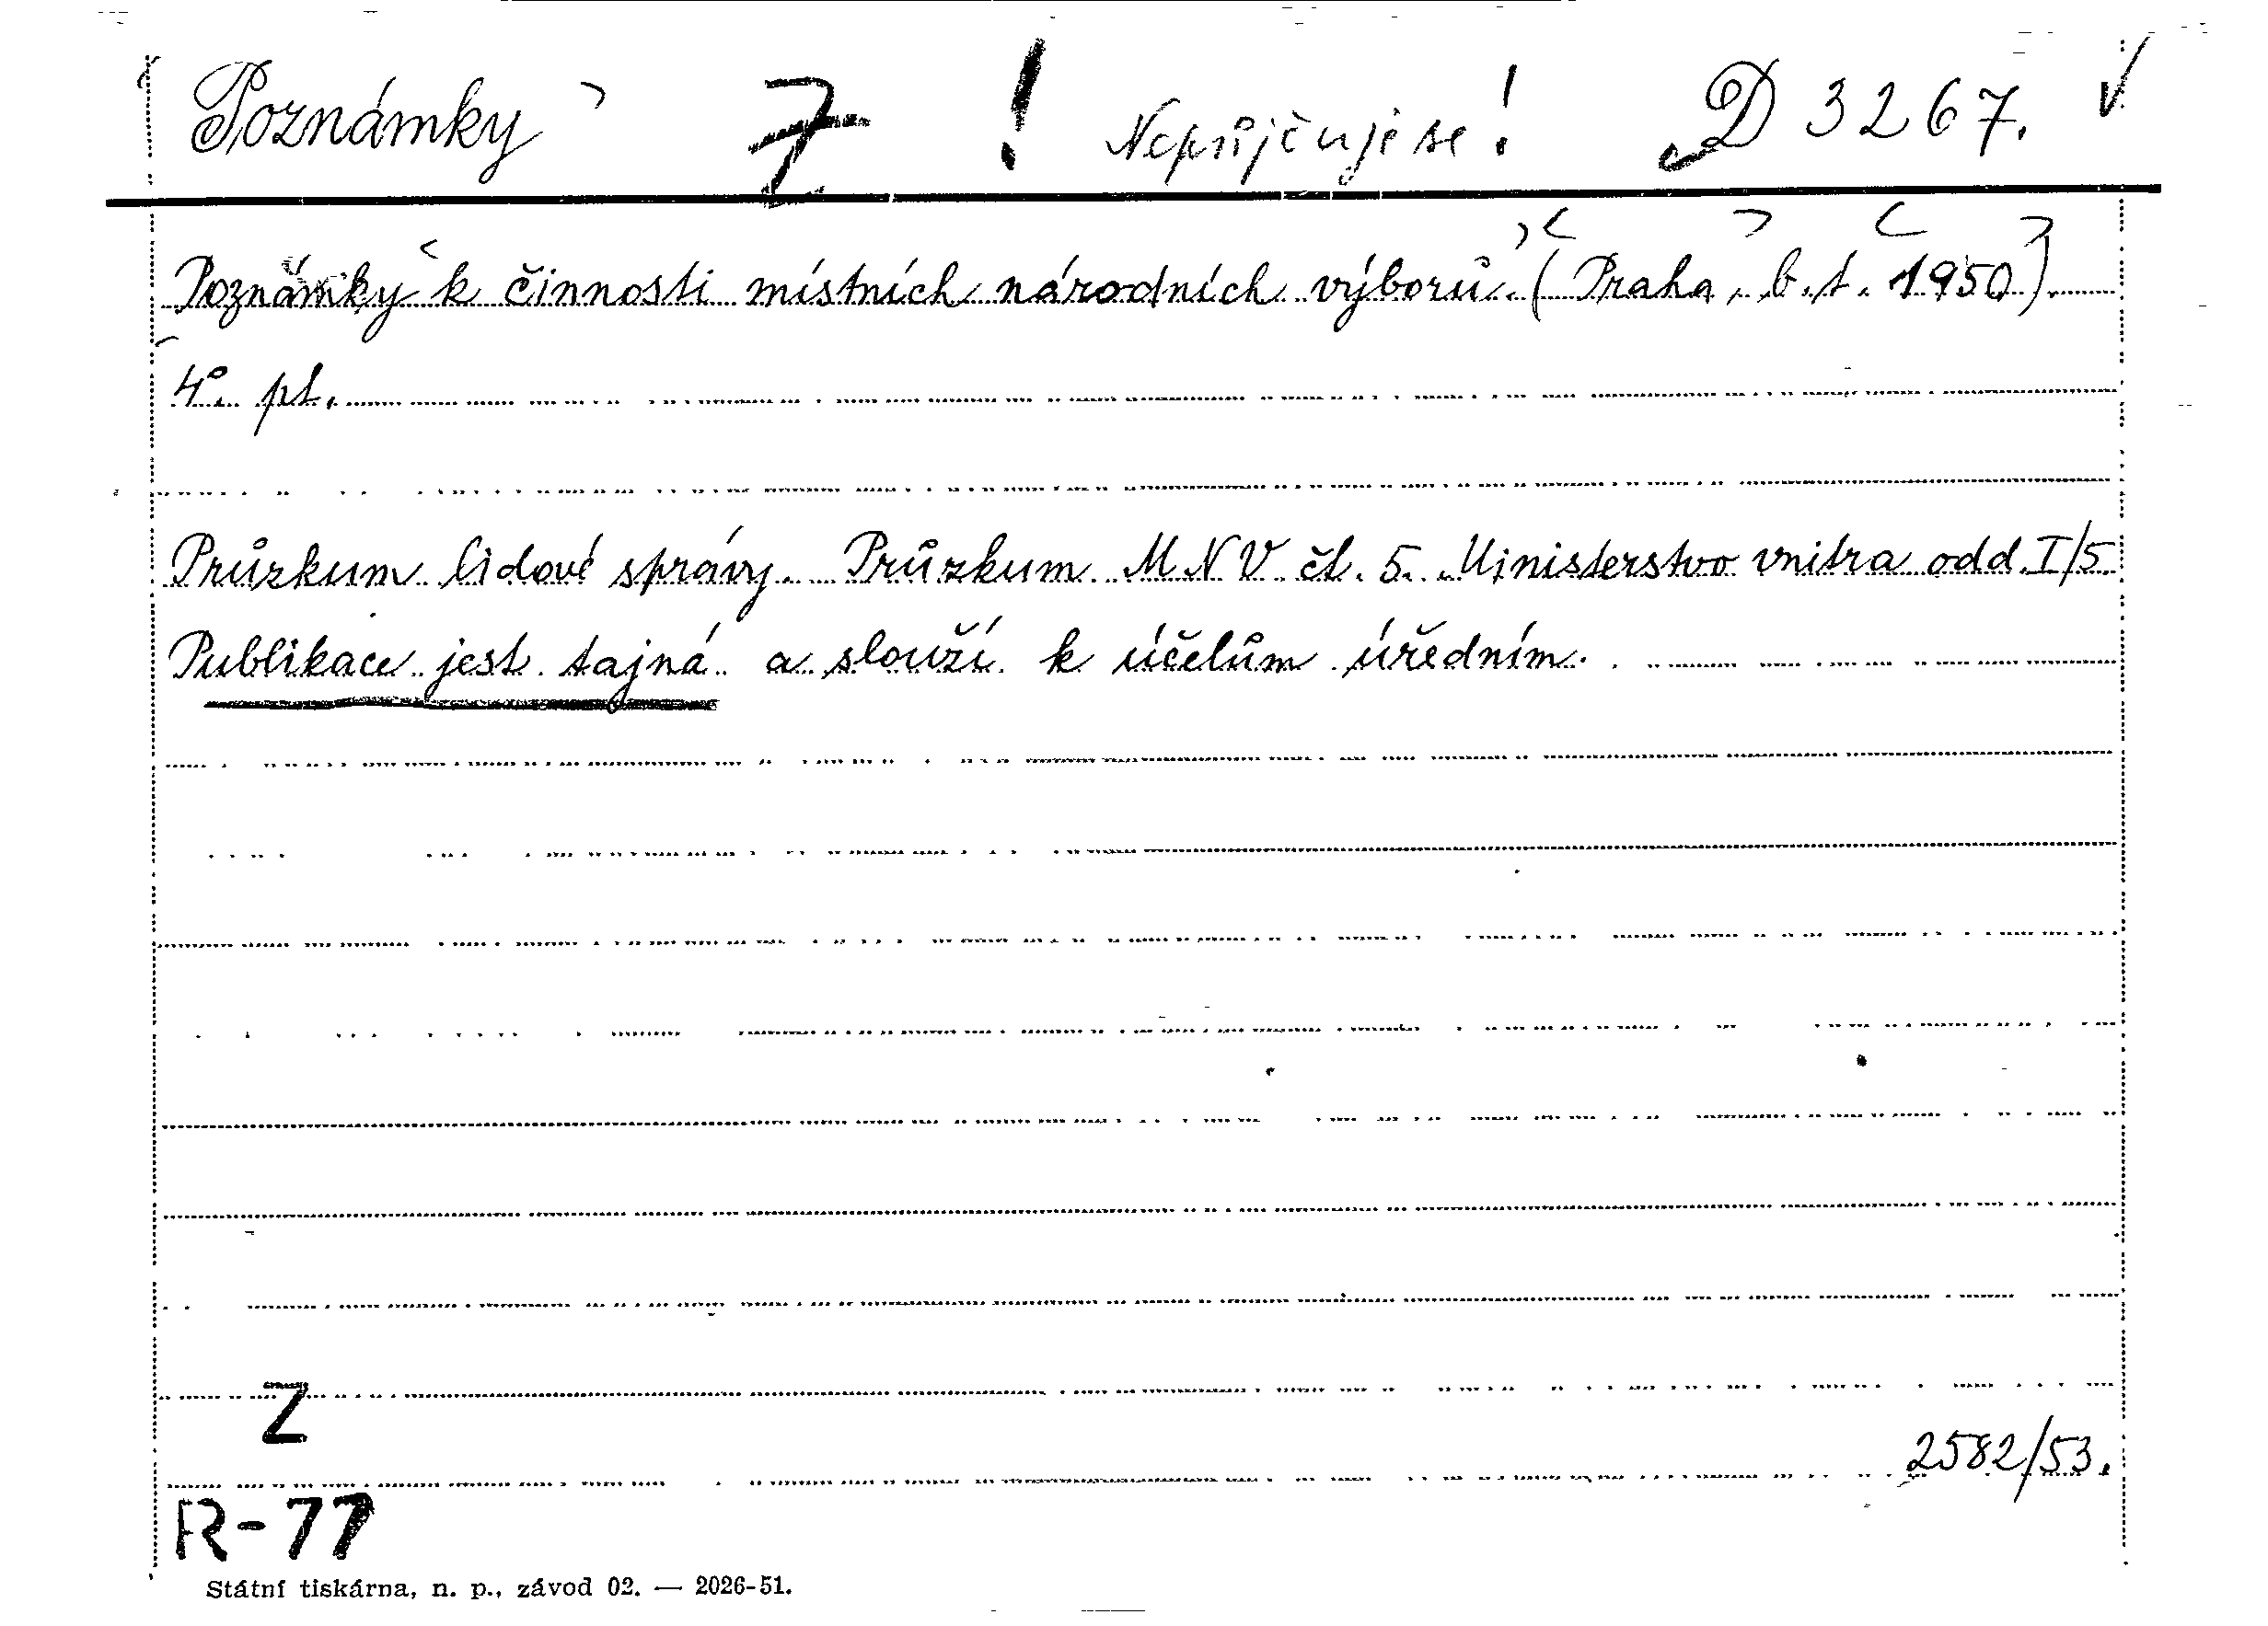 Poznámky 7 ! Nepůjčuje se! D 3267.
Poznámky k činnosti místních národních výborů. (Praha, b.t. 1950).
4°. pl.
Průzkum lidové správy. Průzkum MNV čl. 5. Ministerstvo vnitra odd. I/5
Publikace jest tajná a slouží k účelům úředním.
Z
2582/53.
R-77
Státní tiskárna, n. p., závod 02. — 2026-51.